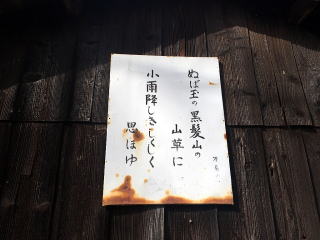 ぬば玉の黒髪山の
山草に
小雨降しきしくしく
思ほゆ